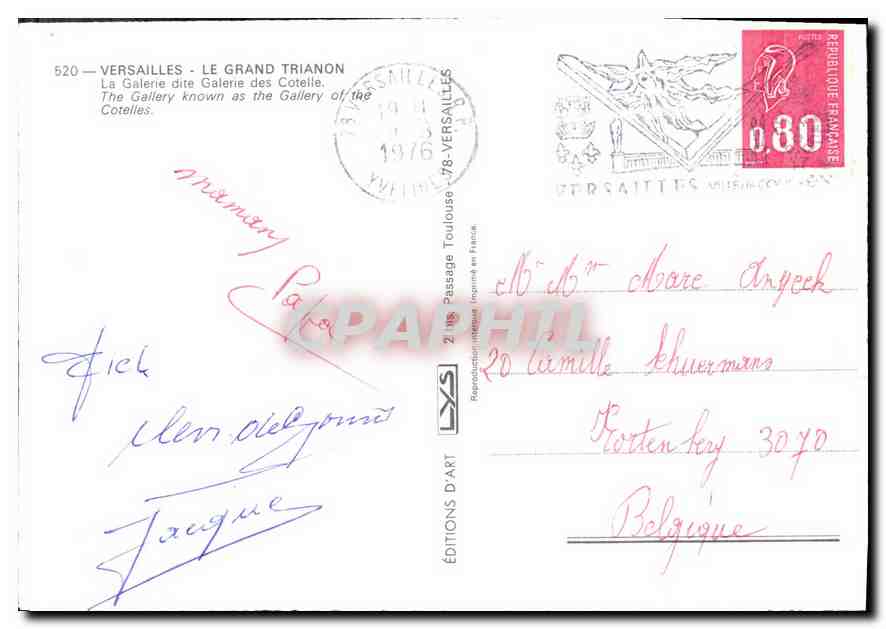 520 — VERSAILLES - LE GRAND TRIANON
La Galerie dite Galerie des Cotelle.
The Gallery known as the Gallery of the
Cotelles.
78 VERSAILLES R.P.
1976
YVELINES
VERSAILLES
POSTES
REPUBLIQUE FRANÇAISE
0,80
maman
Papa
Jacques
CPAPHIL
ÉDITIONS D'ART LYS 2 bis, Passage Toulouse - 78-VERSAILLES
Reproduction interdite. Imprimé en France.
Mr Mme Marc
20 Camille Schuermans
Kortenberg 3070
Belgique